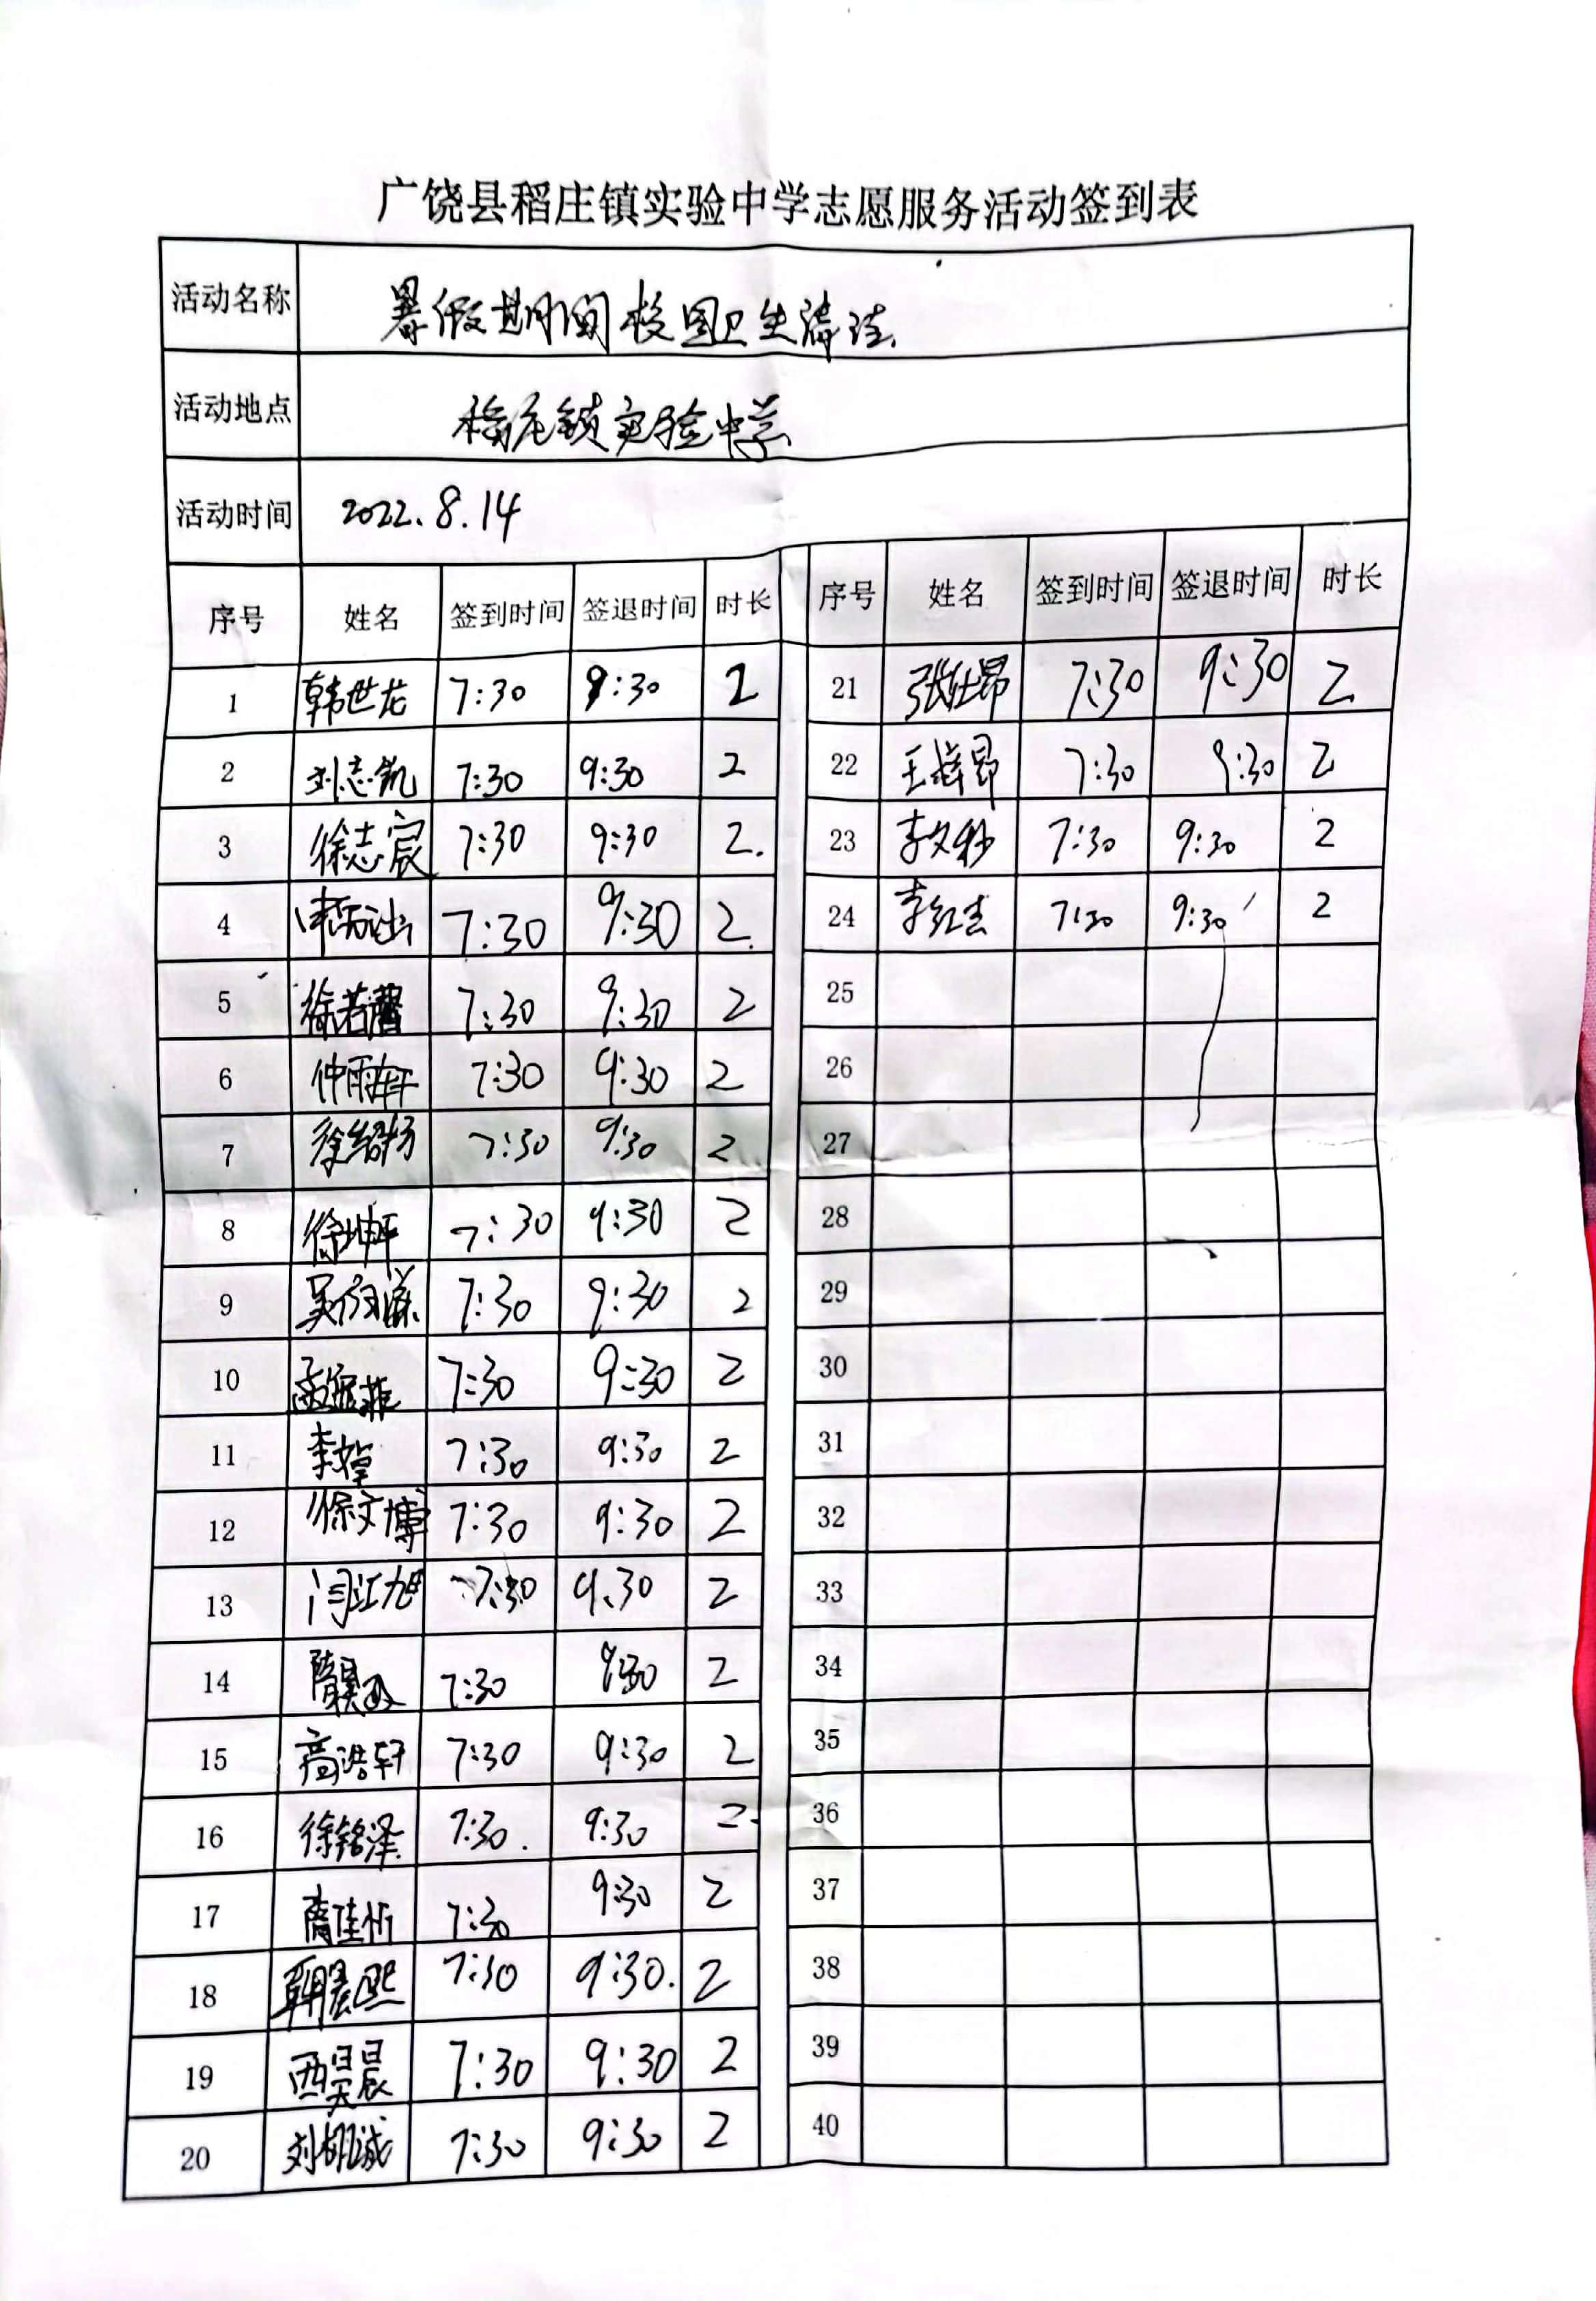 广饶县稻庄镇实验中学志愿服务活动签到表
活动名称 暑假期间校园卫生清洁
活动地点 稻庄镇实验中学
活动时间 2022.8.14
序号 姓名 签到时间 签退时间 时长 序号 姓名 签到时间 签退时间 时长
1 韩世龙 7:30 9:30 2 21 张仕昂 7:30 9:30 2
2 刘志凯 7:30 9:30 2 22 王祥昂 7:30 9:30 2
3 徐志宸 7:30 9:30 2. 23 李文秒 7:30 9:30 2
4 7:30 9:30 2 24 李红吉 7:30 9:30 2
5 徐若馨 7:30 9:30 2 25
6 仲雨轩 7:30 9:30 2 26
7 徐绍杨 7:30 9:30 2 27
8 徐坤平 7:30 9:30 2 28
9 7:30 9:30 2 29
10 7:30 9:30 2 30
11 7:30 9:30 2 31
12 徐文博 7:30 9:30 2 32
13 闫江旭 7:30 9.30 2 33
14 7:30 9:30 2 34
15 高浩轩 7:30 9:30 2 35
16 徐铭泽 7:30. 9:30 2 36
17 高佳忻 7:30 9:30 2 37
18 7:30 9:30. 2 38
19 西昊晨 7:30 9:30 2 39
20 7:30 9:30 2 40